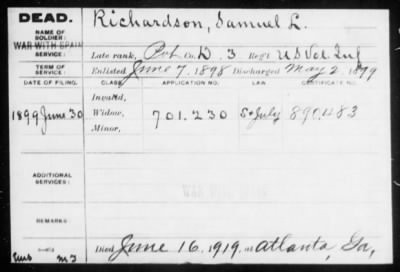 DEAD.
Richardson, Samuel L.
NAME OF SOLDIER:
WAR WITH SPAIN
Late rank, Pvt Co. D. 3 Reg't US Vol. Inf
TERM OF SERVICE:
Enlisted June 7, 1898 Discharged May 2, 1899
DATE OF FILING. CLASS. APPLICATION NO. CERTIFICATE NO.
Invalid,
1899 June 30 Widow, 701.230 890483
Minor,
ADDITIONAL SERVICES:
WAR WITH SPAIN
REMARKS:
Died June 16, 1919, at Atlanta, Ga,